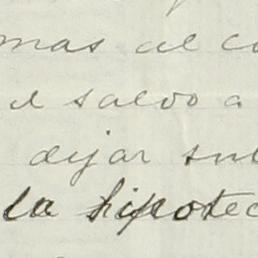 mas al co
el salvo a
dejar sub
la hipotec